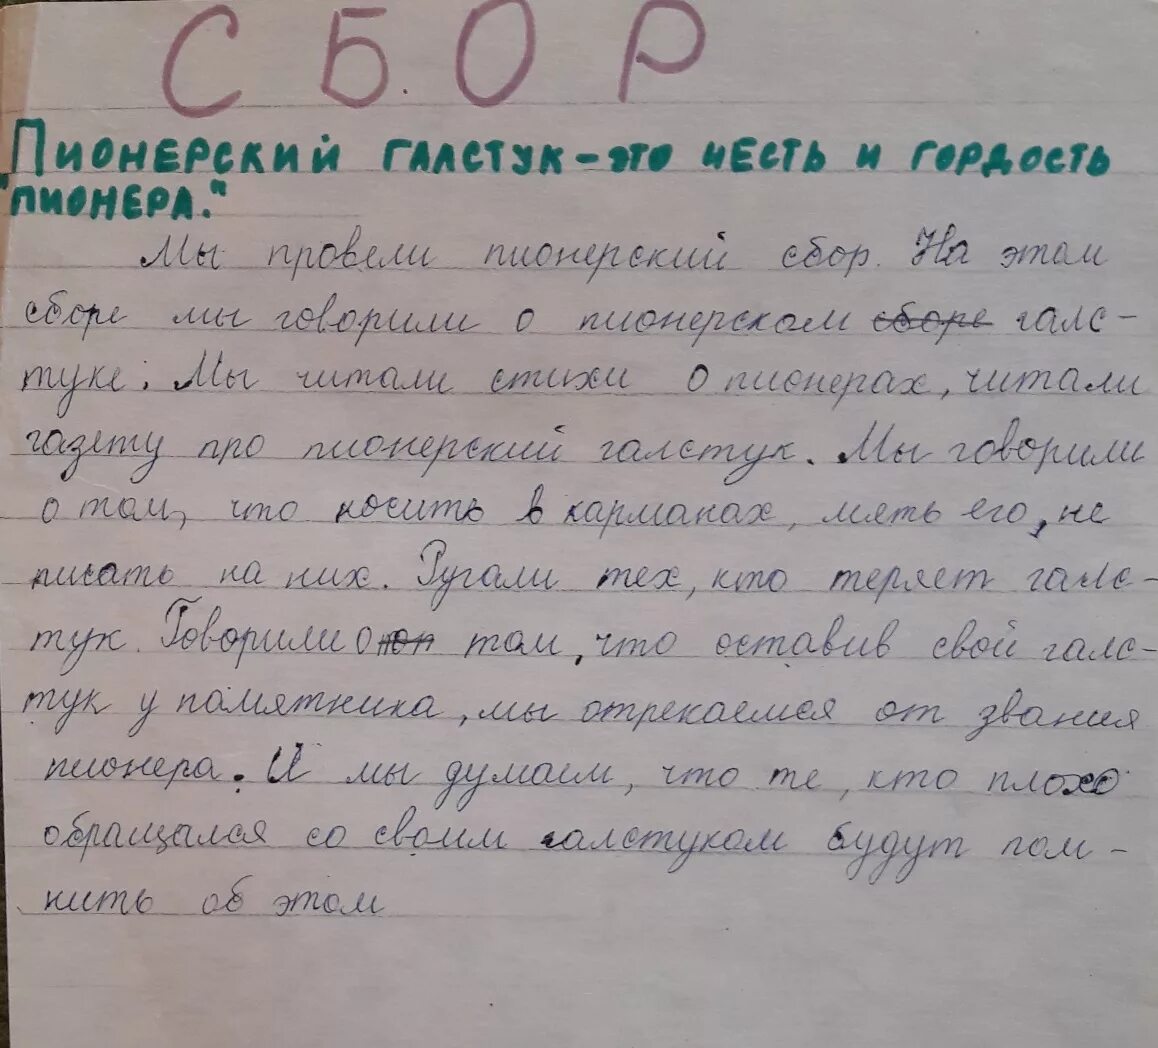 СБОР
Пионерский галстук - это честь и гордость
"пионера."
Мы провели пионерский сбор. На этом
сборе мы говорили о пионерском сборе галс-
туке. Мы читали стихи о пионерах, читали
газету про пионерский галстук. Мы говорили
о том, что носить в карманах, мять его, не
писать на них. Ругали тех, кто теряет галс-
тук. Говорили о том, что оставив свой галс-
тук у памятника, мы отрекаемся от звания
пионера. И мы думаем, что те, кто плохо
обращался со своим галстуком будут пом-
нить об этом